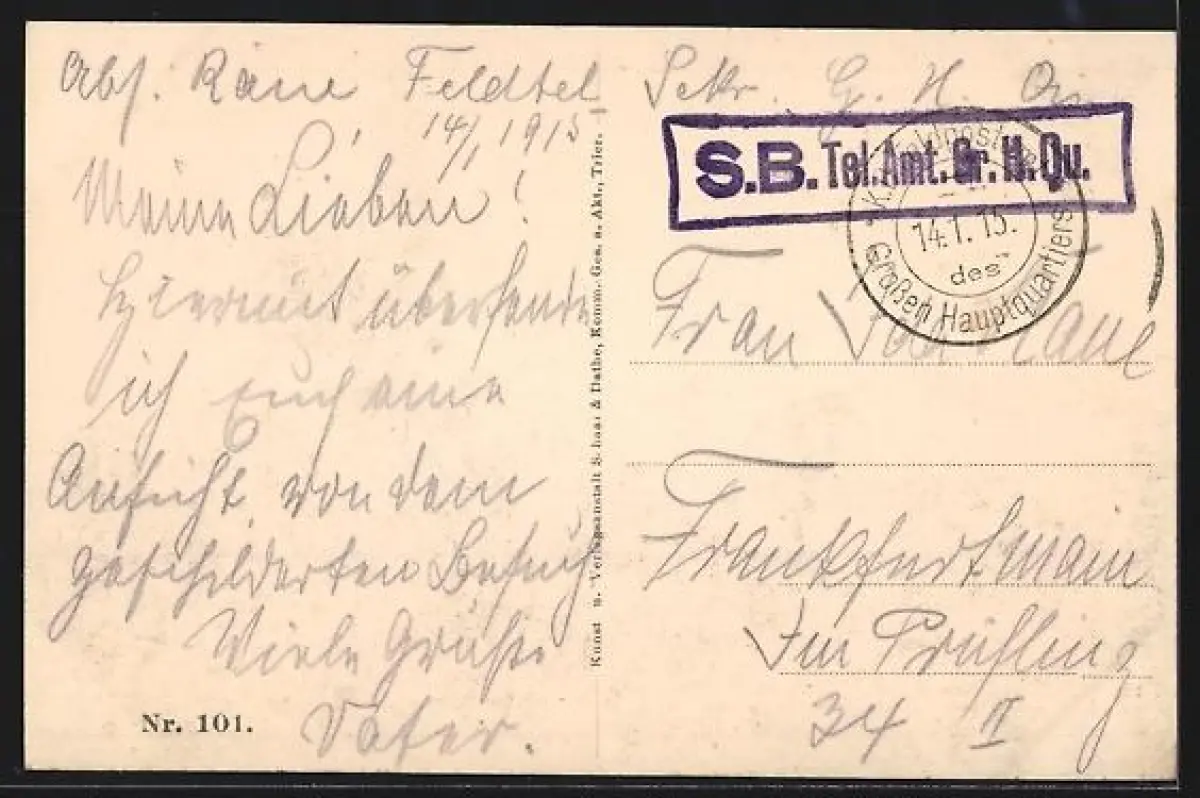 Abs. Räne Feldtel. Sekr. G. H. Qu.
14/1 1915
Meine Lieben!
Hiermit übersende
ich Euch eine
Ansicht von dem
geschilderten Besuch
Viele Grüße
Vater.
Nr. 101.
Kunst u. Verlagsanstalt Schaar & Dathe, Komm. Ges. a. Akt., Trier.
S.B. Tel. Amt. Gr. H. Qu.
14.1.15.
des
Großen Hauptquartiers
Frau
Frankfurt Main
Im Prüfling
34 II